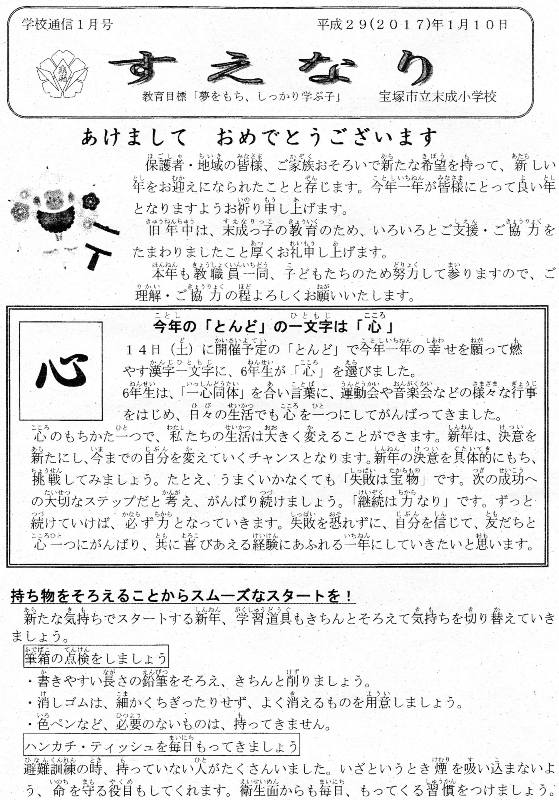 学校通信1月号　平成29(2017)年1月10日
すえなり
教育目標「夢をもち、しっかり学ぶ子」　宝塚市立末成小学校
あけまして　おめでとうございます
保護者・地域の皆様、ご家族おそろいで新たな希望を持って、新しい
年をお迎えになられたことと存じます。今年一年が皆様にとって良い年
となりますようお祈り申し上げます。
旧年中は、末成っ子の教育のため、いろいろとご支援・ご協力を
たまわりましたこと厚くお礼申し上げます。
本年も教職員一同、子どもたちのため努力して参りますので、ご
理解・ご協力の程よろしくお願いいたします。
今年の「とんど」の一文字は「心」
心
14日（土）に開催予定の「とんど」で今年一年の幸せを願って燃
やす漢字一文字に、6年生が「心」を選びました。
6年生は、「一心同体」を合い言葉に、運動会や音楽会などの様々な行事
をはじめ、日々の生活でも心を一つにしてがんばってきました。
心のもちかた一つで、私たちの生活は大きく変えることができます。新年は、決意を
新たにし、今までの自分を変えていくチャンスとなります。新年の決意を具体的にもち、
挑戦してみましょう。たとえ、うまくいかなくても「失敗は宝物」です。次の成功へ
の大切なステップだと考え、がんばり続けましょう。「継続は力なり」です。ずっと
続けていけば、必ず力となっていきます。失敗を恐れずに、自分を信じて、友だちと
心一つにがんばり、共に喜びあえる経験にあふれる一年にしていきたいと思います。
持ち物をそろえることからスムーズなスタートを！
新たな気持ちでスタートする新年、学習道具もきちんとそろえて気持ちを切り替えていき
ましょう。
筆箱の点検をしましょう
・書きやすい長さの鉛筆をそろえ、きちんと削りましょう。
・消しゴムは、細かくちぎったりせず、よく消えるものを用意しましょう。
・色ペンなど、必要のないものは、持ってきません。
ハンカチ・ティッシュを毎日もってきましょう
避難訓練の時、持っていない人がたくさんいました。いざというとき煙を吸い込まないよ
う、命を守る役目もしてくれます。衛生面からも毎日、もってくる習慣をつけましょう。